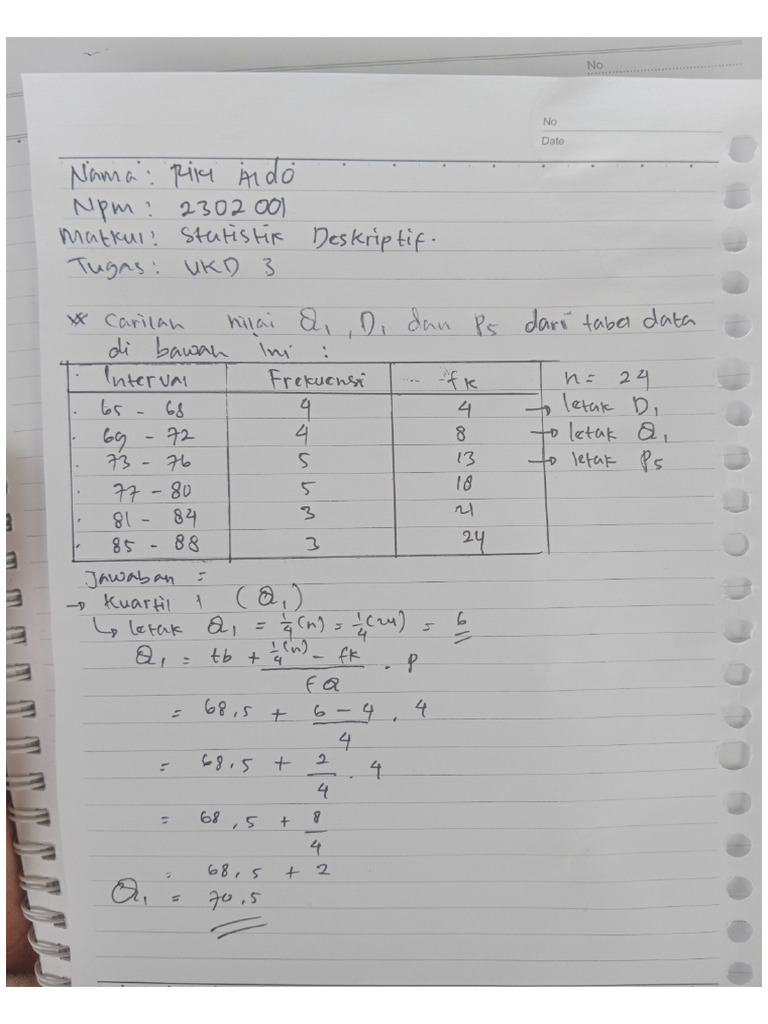 No
No
Date
Nama: Riki Aldo
Npm: 2302001
Matkul: Statistik Deskriptif.
Tugas: UKD 3
** Carilah nilai Q1, D1 dan P5 dari tabel data
di bawah ini :
Interval Frekuensi fk n = 24
65 - 68 4 4 → letak D1
69 - 72 4 8 → letak Q1
73 - 76 5 13 → letak P5
77 - 80 5 18
81 - 84 3 21
85 - 88 3 24
Jawaban =
→ Kuartil 1 (Q1)
↳ letak Q1 = 1/4 (n) = 1/4 (24) = 6
Q1 = tb + 1/4 (n) - fk / fQ . P
= 68,5 + 6 - 4 / 4 . 4
= 68,5 + 2 / 4 . 4
= 68,5 + 8 / 4
= 68,5 + 2
Q1 = 70,5